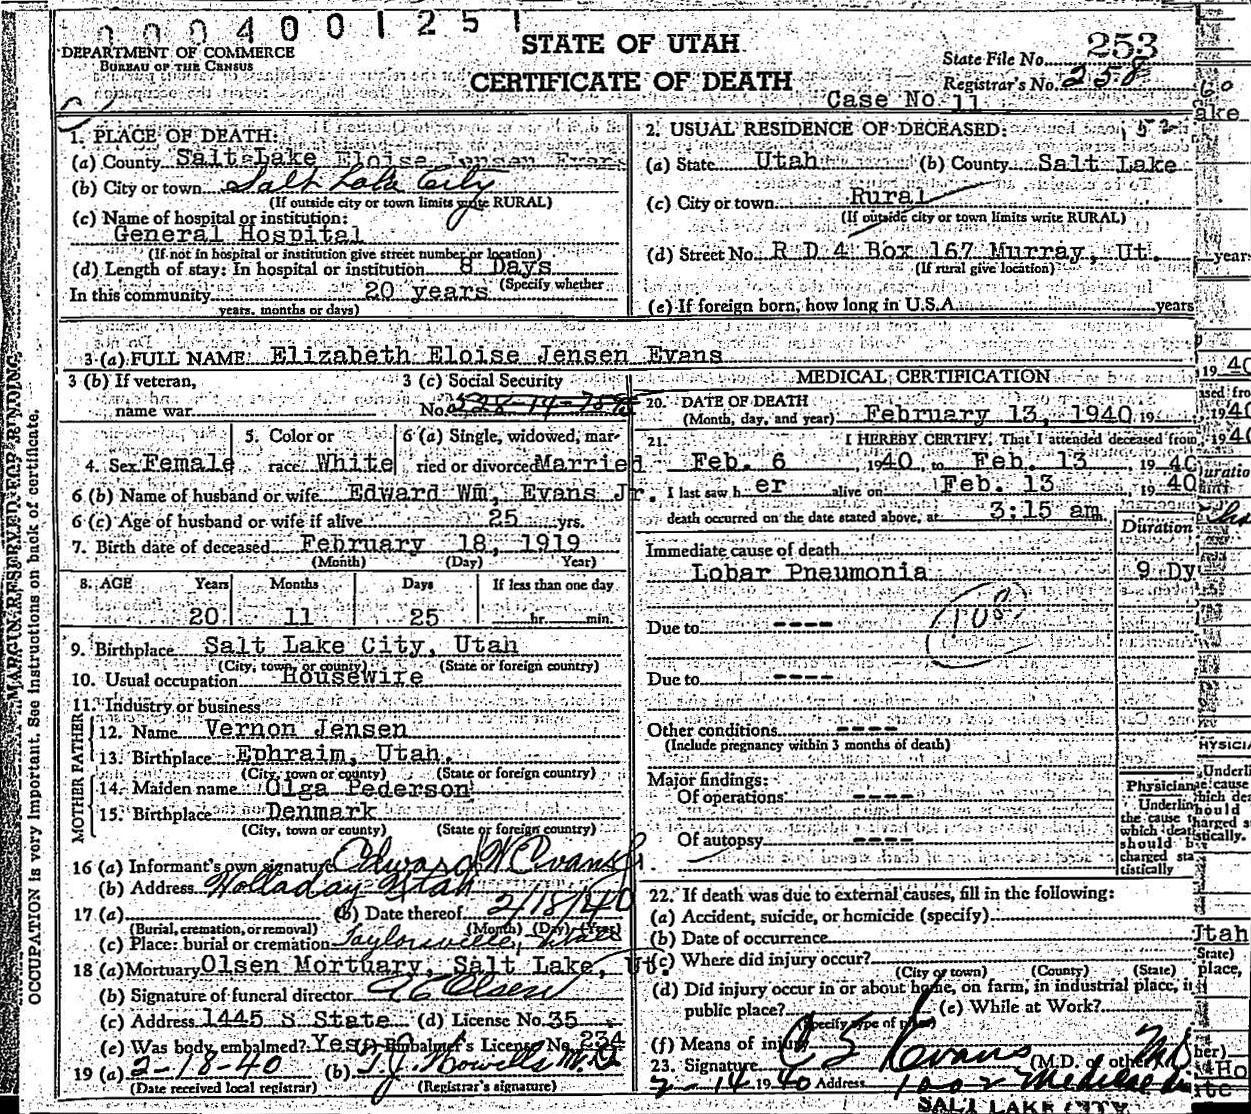 0004001251
DEPARTMENT OF COMMERCE
BUREAU OF THE CENSUS
STATE OF UTAH
CERTIFICATE OF DEATH
State File No. 253
Registrar's No. 258
Case No. 11
1. PLACE OF DEATH:
(a) County Salt Lake Eloise Jensen Evans
(b) City or town Salt Lake City
(If outside city or town limits write RURAL)
(c) Name of hospital or institution:
General Hospital
(If not in hospital or institution give street number or location)
(d) Length of stay: In hospital or institution 8 Days
(Specify whether
In this community 20 years
years, months or days)
2. USUAL RESIDENCE OF DECEASED:
(a) State Utah (b) County Salt Lake
(c) City or town Rural
(If outside city or town limits write RURAL)
(d) Street No. R D 4 Box 167 Murray, Ut.
(If rural give location)
(e) If foreign born, how long in U.S.A. years
3 (a) FULL NAME Elizabeth Eloise Jensen Evans
3 (b) If veteran,
name war
3 (c) Social Security
No.
4. Sex Female
5. Color or
race White
6 (a) Single, widowed, mar-
ried or divorced Married
6 (b) Name of husband or wife Edward Wm. Evans Jr.
6 (c) Age of husband or wife if alive 25 yrs.
7. Birth date of deceased February 18, 1919
(Month) (Day) Year)
8. AGE Years Months Days If less than one day
20 11 25 hr. min.
9. Birthplace Salt Lake City, Utah
(City, town, or county) (State or foreign country)
10. Usual occupation Housewife
11. Industry or business
FATHER
12. Name Vernon Jensen
13. Birthplace Ephraim, Utah.
(City, town or county) (State or foreign country)
MOTHER
14. Maiden name Olga Pederson
15. Birthplace Denmark
(City, town or county) (State or foreign country)
16 (a) Informant's own signature Edward W Evans Jr
(b) Address Holladay Utah
17 (a) (b) Date thereof 2/18/40
(Burial, cremation, or removal) (Month) (Day) (Year)
(c) Place: burial or cremation Taylorsville, Utah
18 (a) Mortuary Olsen Mortuary, Salt Lake, Ut.
(b) Signature of funeral director
(c) Address 1445 S State (d) License No. 35
(e) Was body embalmed? Yes Embalmer's License No. 234
19 (a) 2-18-40 (b) T.J. Howells M.D.
(Date received local registrar) (Registrar's signature)
MEDICAL CERTIFICATION
20. DATE OF DEATH
(Month, day, and year) February 13, 1940 19
21. I HEREBY CERTIFY, That I attended deceased from
Feb. 6, 1940, to Feb. 13, 1940
I last saw h er alive on Feb. 13, 1940
death occurred on the date stated above, at 3:15 am.
Duration
Immediate cause of death
Lobar Pneumonia 9 Dy
108
Due to ----
Due to ----
Other conditions ----
(Include pregnancy within 3 months of death)
Major findings:
Of operations ----
Of autopsy ----
Physician
Underlin
the cause t
which deat
should b
charged sta
tistically
22. If death was due to external causes, fill in the following:
(a) Accident, suicide, or homicide (specify)
(b) Date of occurrence
(c) Where did injury occur?
(City or town) (County) (State)
(d) Did injury occur in or about home, on farm, in industrial place, in
public place? (e) While at Work?
(Specify type of place)
(f) Means of injury
23. Signature C S Evans (M.D. or other) MD
2-14 1940 Address 1002 Medical
SALT LAKE CITY
MARGIN RESERVED FOR BINDING
OCCUPATION is very important. See instructions on back of certificate.